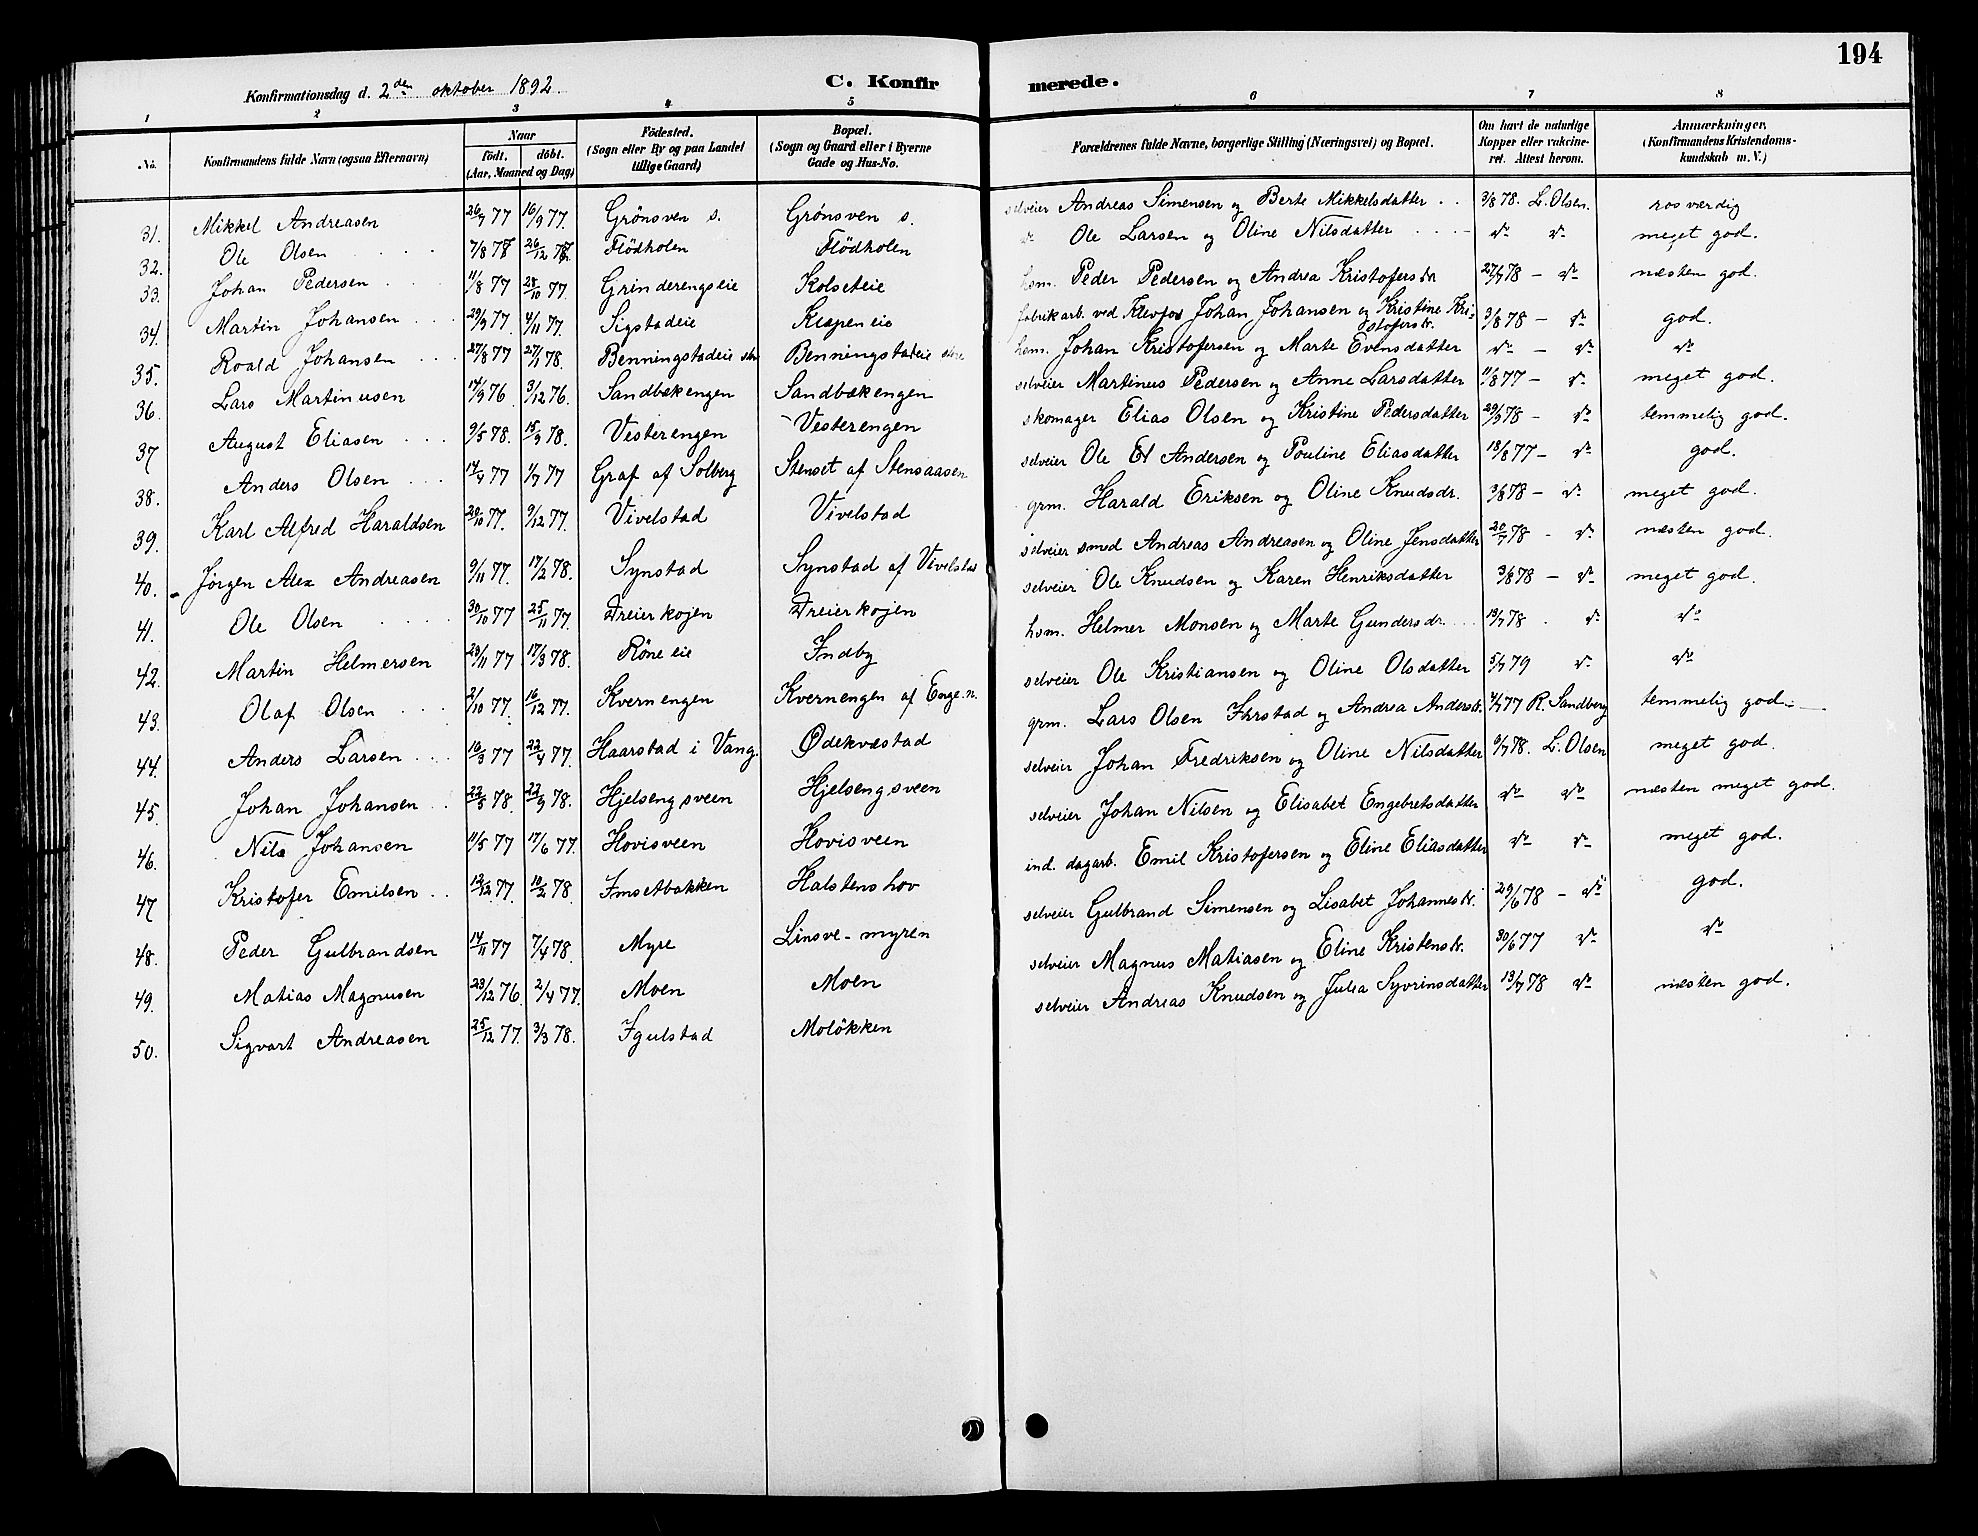 194
Konfirmationsdag d. 2den oktober 1892.
C. Konfirmerede.
1 2 3 4 5 6 7 8
No. Konfirmandens fulde Navn (ogsaa Efternavn) Naar født. døbt. (Aar, Maaned og Dag) Fødested. (Sogn eller By og paa Landet tillige Gaard) Bopæl. (Sogn og Gaard eller i Byerne Gade og Hus-No. Forældrenes fulde Navne, borgerlige Stilling (Næringsvei) og Bopæl. Om havt de naturlige Kopper eller vakcineret. Attest herom. Anmærkninger. (Konfirmandens Kristendomskundskab m. V.)
31. Mikkel Andreasen 26/7 77 16/9 77. Grönsven s. Grönsven s. selveier Andreas Simensen og Berte Mikkelsdatter 3/8 78. L. Olsen. rosværdig
32. Ole Olsen 7/8 78 26/12 78. Flödholen Flödholen do Ole Larsen og Oline Nilsdatter do do meget god.
33. Johan Pedersen 11/8 77 28/10 77. Grinderengseie Kolseteie hsm. Peder Pedersen og Andrea Kristofersdr. 27/7 78 – do næsten god.
34. Martin Johansen 29/9 77. 4/11 77. Sigstadeie Klapeneie fabrikarb. ved Klevfos Johan Johansen og Kristine Kristofersdr. 3/8 78 – do god.
35. Roald Johansen 27/8 77 27/1 78. Benningstadeie stre Benningstadeie stre hsm. Johan Kristofersen og Marte Evensdatter do – do do
36. Lars Martinusen 14/9 76 3/12 76. Sandbækengen Sandbækengen selveier Martinus Pedersen og Anne Larsdatter 11/8 77 – do meget god.
37 August Eliasen 9/5 78. 15/9 78. Vesterengen Vesterengen skomager Elias Olsen og Kristine Pedersdatter 29/9 78 – do temmelig god.
38. Anders Olsen 14/4 77 1/7 77 Graf af Solberg Stenset af Stensaasen selveier Ole El Andersen og Pouline Eliasdatter 18/8 77 – do god.
39. Karl Alfred Haraldsen 20/10 77. 9/12 77. Vivelstad Vivelstad grm. Harald Eriksen og Oline Knudsdr. 3/8 78 – do meget god.
40. Jørgen Alex Andreasen 9/11 77. 17/2 78. Synstad Synstad af Vivelstad selveier smed Andreas Andreasen og Oline Jensdatter 20/7 78 – do næsten god.
41. Ole Olsen 30/10 77 25/11 77. Dreierkojen Dreierkojen selveier Ole Knudsen og Karen Henriksdatter 3/8 78 – do meget god.
42. Martin Helmersen 23/11 77 17/3 78. Röneeie Indby hsm. Helmer Monsen og Marte Gundersdr. 13/7 78 do do
43. Olaf Olsen 2/10 77. 16/12 77. Kvernengen Kvernengen af Enge n. selveier Ole Kristiansen og Oline Olsdatter 5/7 79 do do
44. Anders Larsen 16/3 77 22/4 77. Haarstad i Vang. Ødekvæstad grm. Lars Olsen Ihrstad og Andrea Andersdr. 4/7 77 R. Sandberg temmelig god.
45. Johan Johansen 22/5 78. 22/9 78. Hjelsengsveen Hjelsengsveen selveier Johan Fredriksen og Oline Nilsdatter 6/7 78. L. Olsen meget god.
46. Nils Johansen 11/5 77 17/6 77. Hovisveen Hovisveen selveier Johan Nilsen og Elisabet Engebretsdatter do do næsten meget god.
47 Kristofer Emilsen 12/12 77. 10/2 78 Imsetbakken Halstenshov ind. dagarb. Emil Kristofersen og Eline Eliasdatter do do meget god.
48. Peder Gulbrandsen 14/11 77 7/4 78. Myre Linsve-myren selveier Gulbrand Simensen og Lisabet Johannesdr. 29/6 78 – do god.
49. Matias Magnusen 23/12 76. 2/4 77. Moen Moen selveier Magnus Matiasen og Eline Kristensdr. 30/6 77 do do
50. Sigvart Andreasen 25/12 77. 3/3 78. Igulstad Moløkken selveier Andreas Knudsen og Julia Syvrinsdatter 13/7 78 do næsten god.